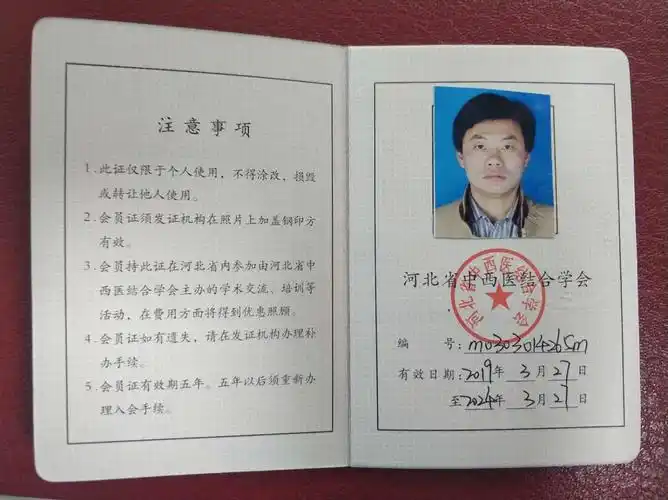 注意事项
1.此证仅限于个人使用，不得涂改，损毁
或转让他人使用。
2.会员证须发证机构在照片上加盖钢印方
有效。
3.会员持此证在河北省内参加由河北省中
西医结合学会主办的学术交流、培训等
活动，在费用方面将得到优惠照顾。
4.会员证如有遗失，请在发证机构办理补
办手续。
5.会员证有效期五年。五年以后须重新办
理入会手续。
河北省中西医结合学会
河北省中西医结合学会
编 号：m030301426Sm
有效日期：2019年3月27日
至2024年3月27日